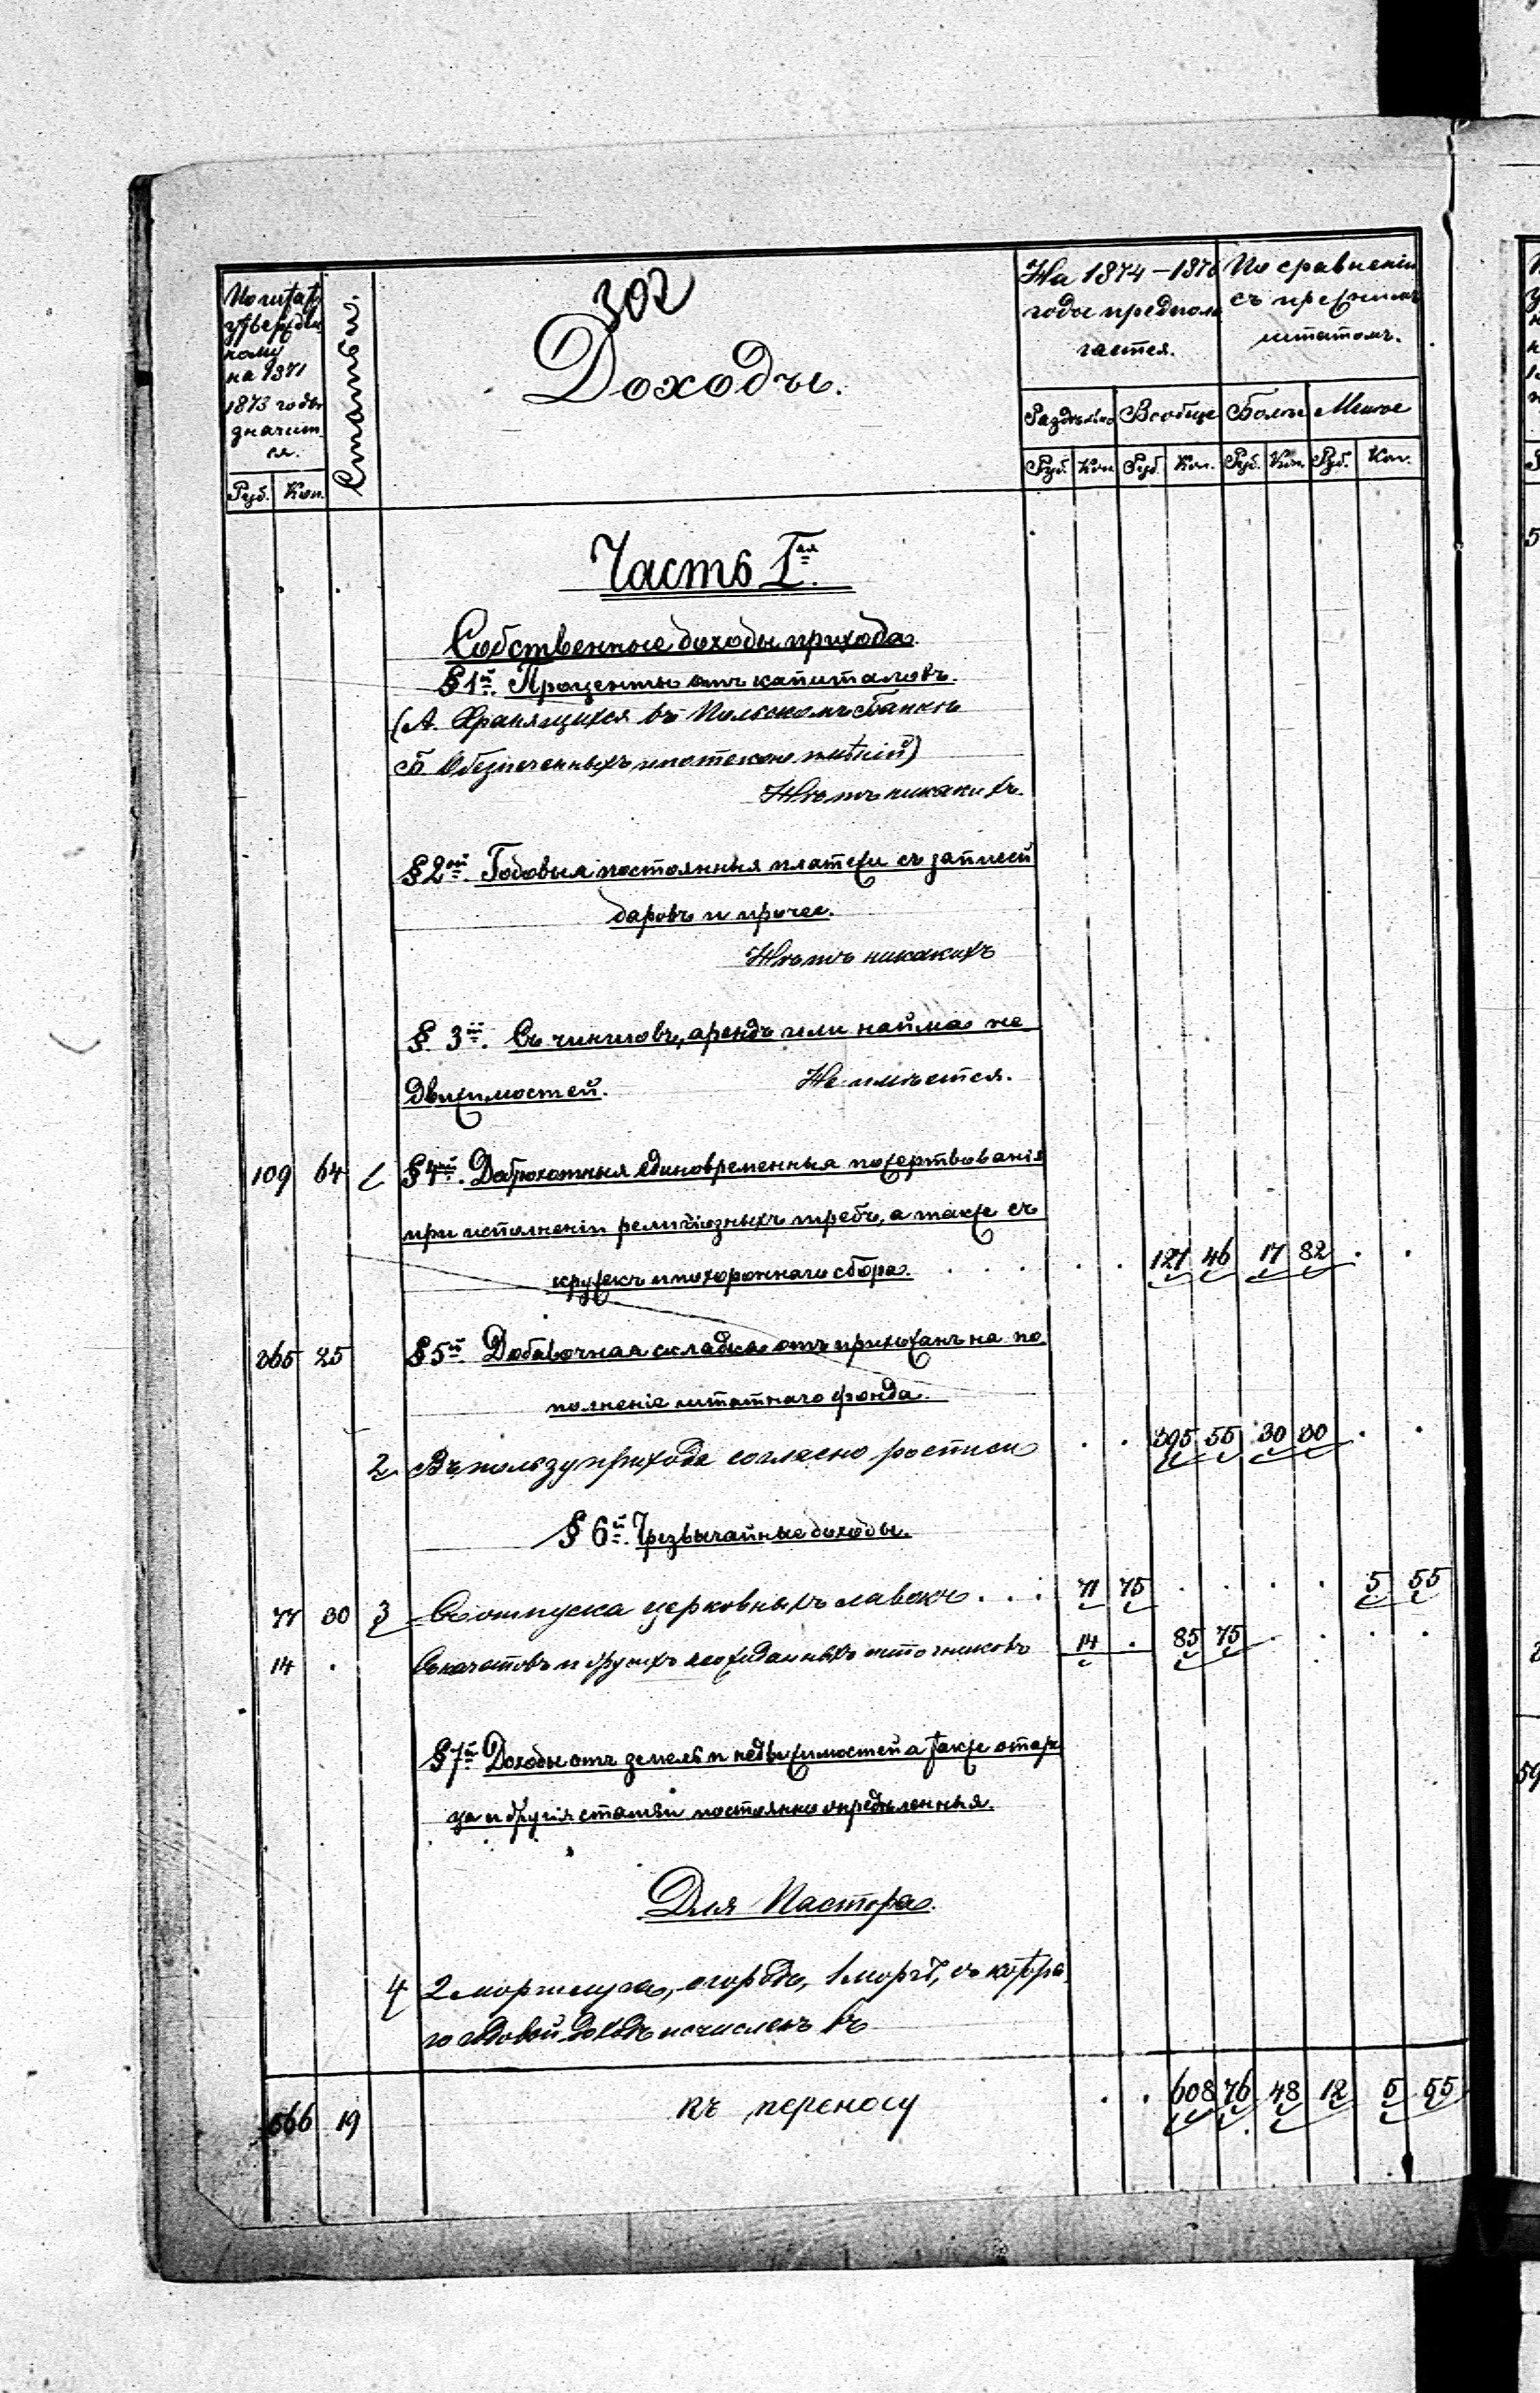 302
Доходы.
По штату
утвержден
ному
на 1871
1873 годы
значит
ся.
Руб. Коп.
Статьи.
На 1874–1876
годы предпола
гается.
По сравненію
съ прежнимъ
штатомъ.
Раздѣльно Вообще Болѣе Менѣе
Руб. Коп. Руб. Коп. Руб. Коп. Руб. Коп.
Часть I ая
Собственные доходы прихода
§ 1й. Проценты отъ капиталовъ.
(А. Хранящихся въ Польскомъ Банкѣ
Б. Обезпеченныхъ ипотекою имѣній)
Нѣтъ никакихъ.
§ 2ой. Годовыя постоянныя платежи съ записей
даровъ и прочее.
Нѣтъ никакихъ
§. 3й. Съ чиншовъ, арендъ или найма не
движимостей. Не имѣется.
109 64 1 § 4ый. Доброхотныя единовременныя пожертвованія
при исполненіи религіозныхъ требъ, а также съ
кружекъ и похороннаго сбора. . . . . . 127 46 17 82 . .
365 25 § 5й Добавочная складка отъ прихожанъ на по
полненіе штатнаго фонда.
2 Въ пользу прихода согласно росписи . . 395 55 30 30 . .
§ 6й. Чрезвычайные доходы.
77 30 3 Съ отпуска церковныхъ лавокъ . . . 71 75 . . . . 5 55
14 . и другихъ неожиданныхъ источниковъ 14 . 85 75 . . . .
§ 7й Доходы отъ земель и недвижимостей а также
и другія статьи постоянно опредѣленныя.
Для Пастора.
4 2 морга луга, огорода, 1 моргъ, съ котора
го годовой доходъ исчисленъ въ
566 19 къ переносу . . 608 76 48 12 5 55